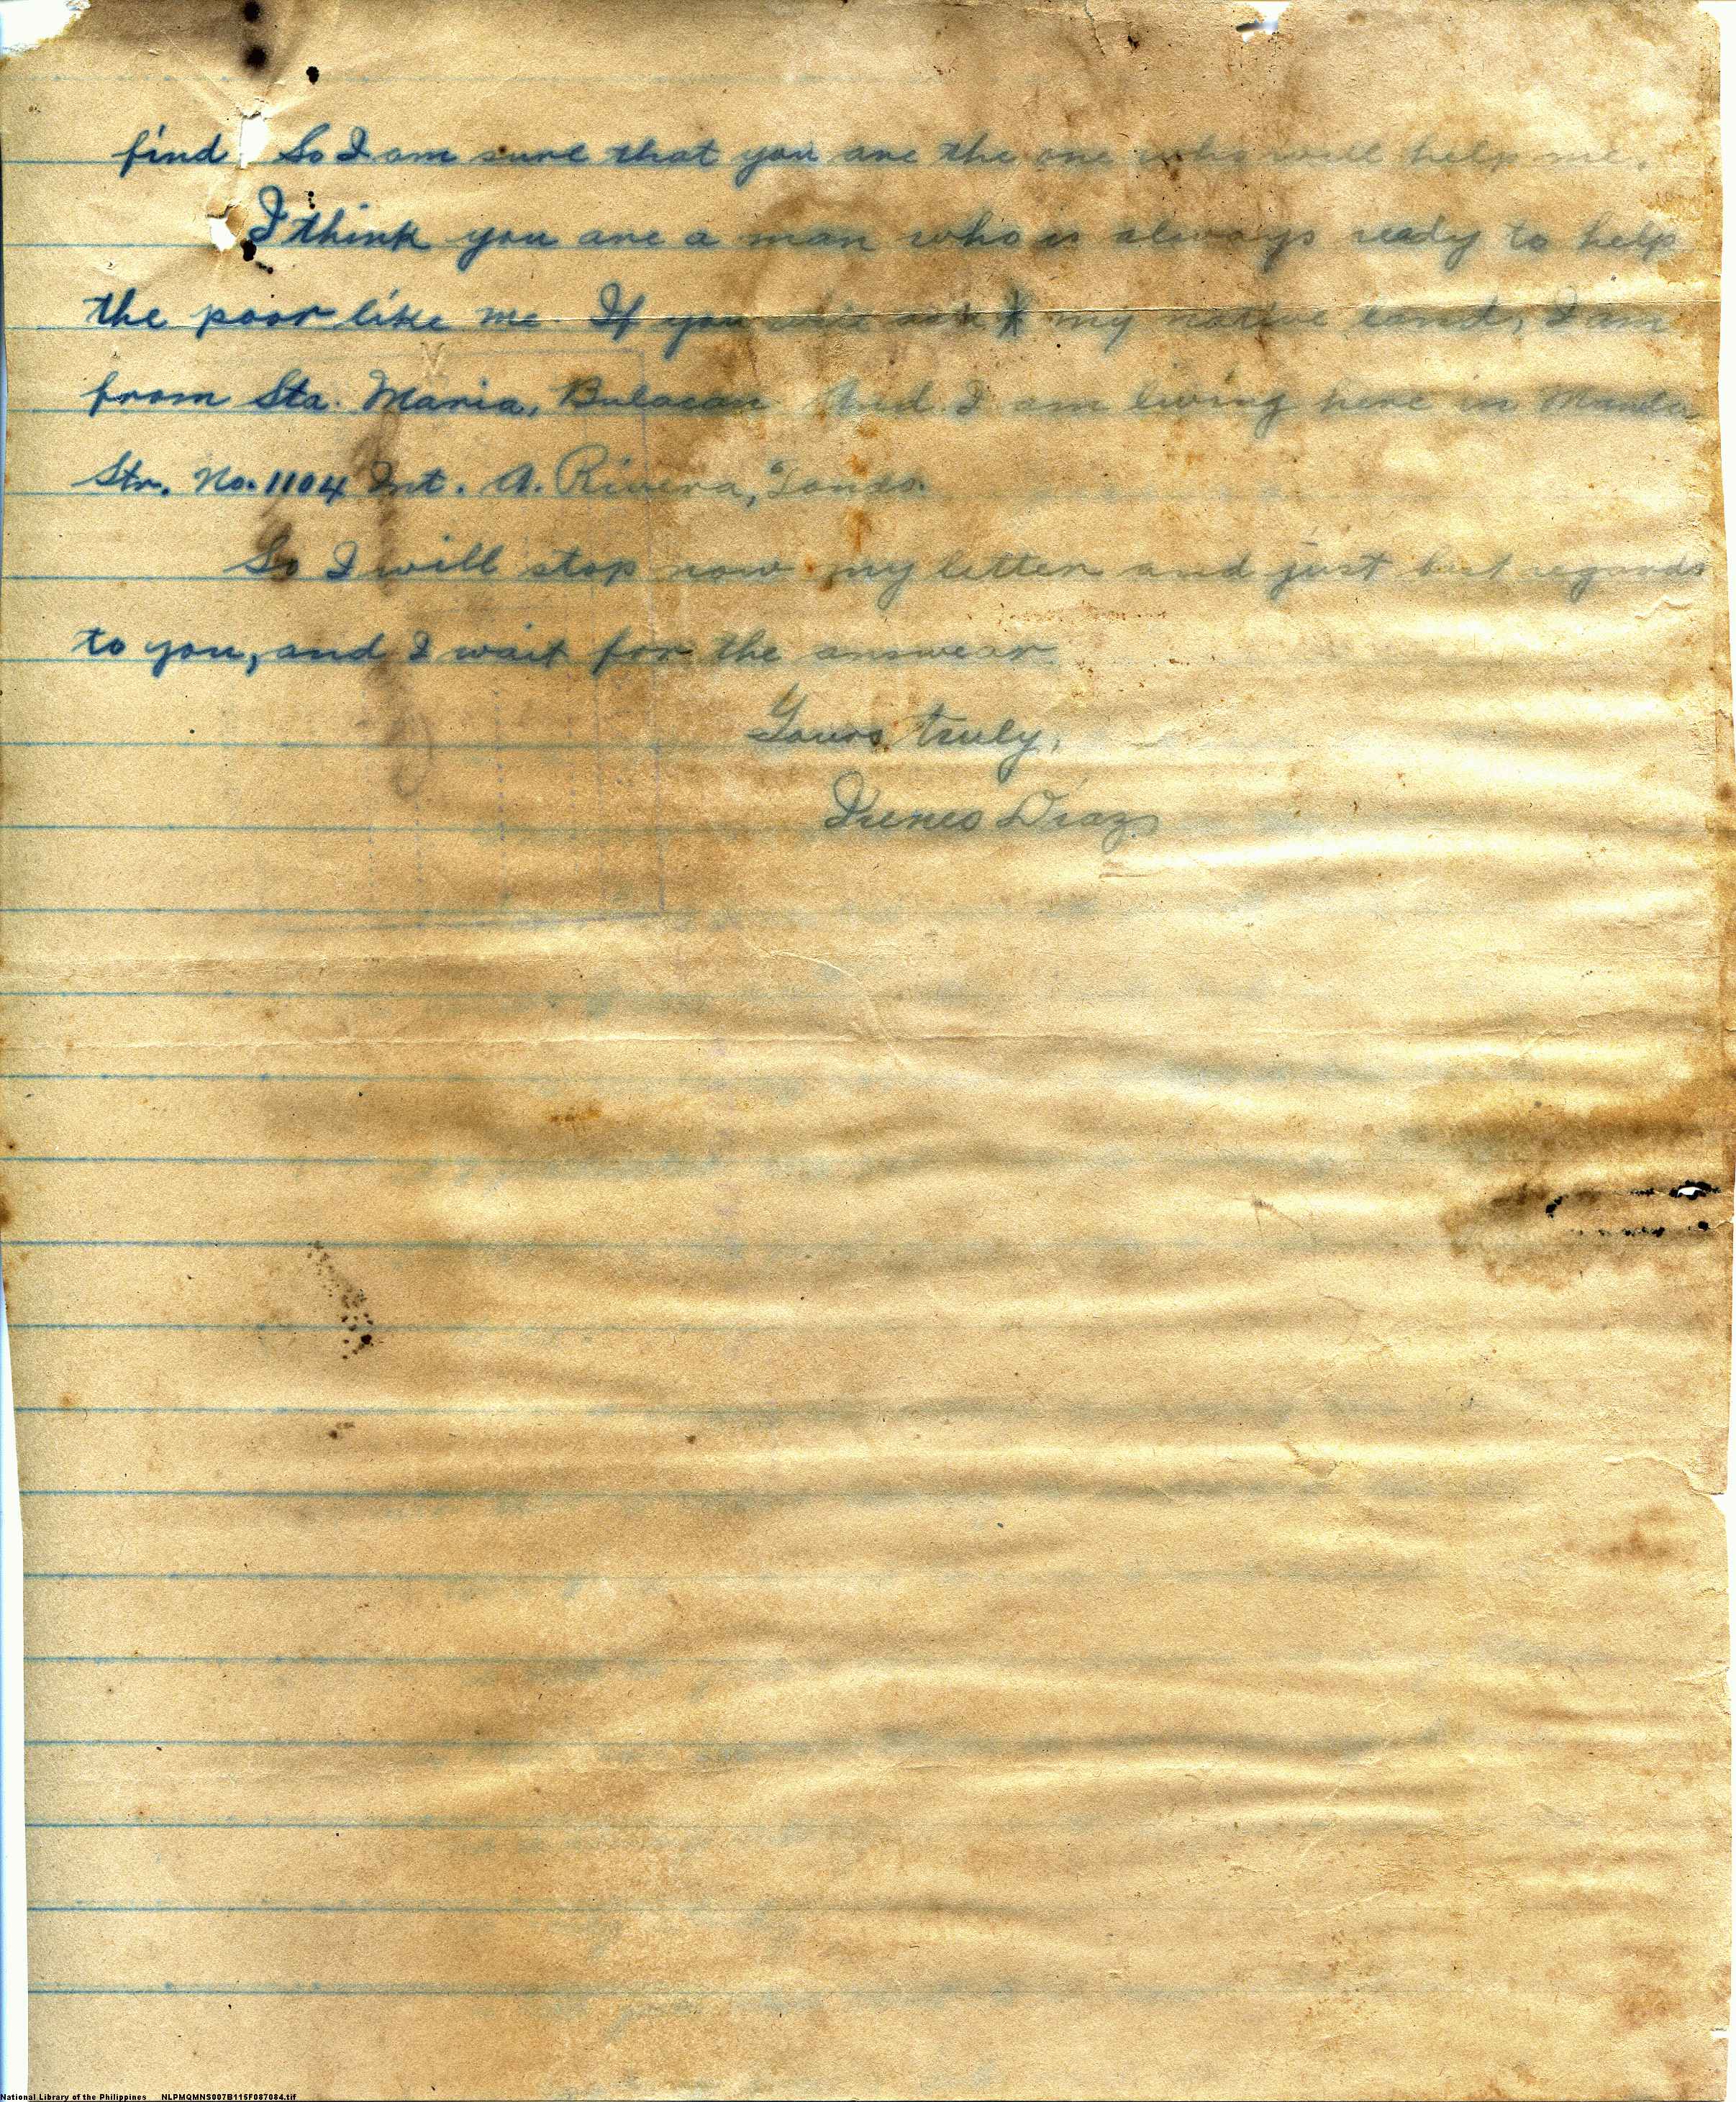 find. So I am sure that you are the one who will help me.
I think you are a man who is always ready to help
the poor like me. If you will ask my native land, I am
from Sta. Maria, Bulacan. And I am living here in Manila
Str. No. 1104 Int. A. Rivera, Tondo.
So I will stop now my letter and just best regards
to you, and I wait for the answear.
Yours truly,
Ireneo Diaz
National Library of the Philippines NLPMQMNS007B115F087084.tif